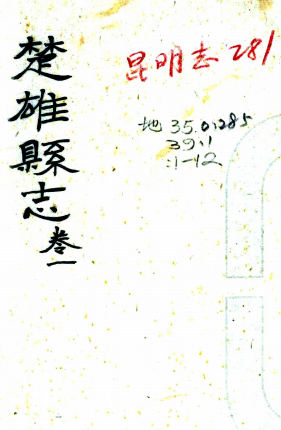 楚雄縣志 卷一
昆明志281
地35.01285
39:1
:1-12